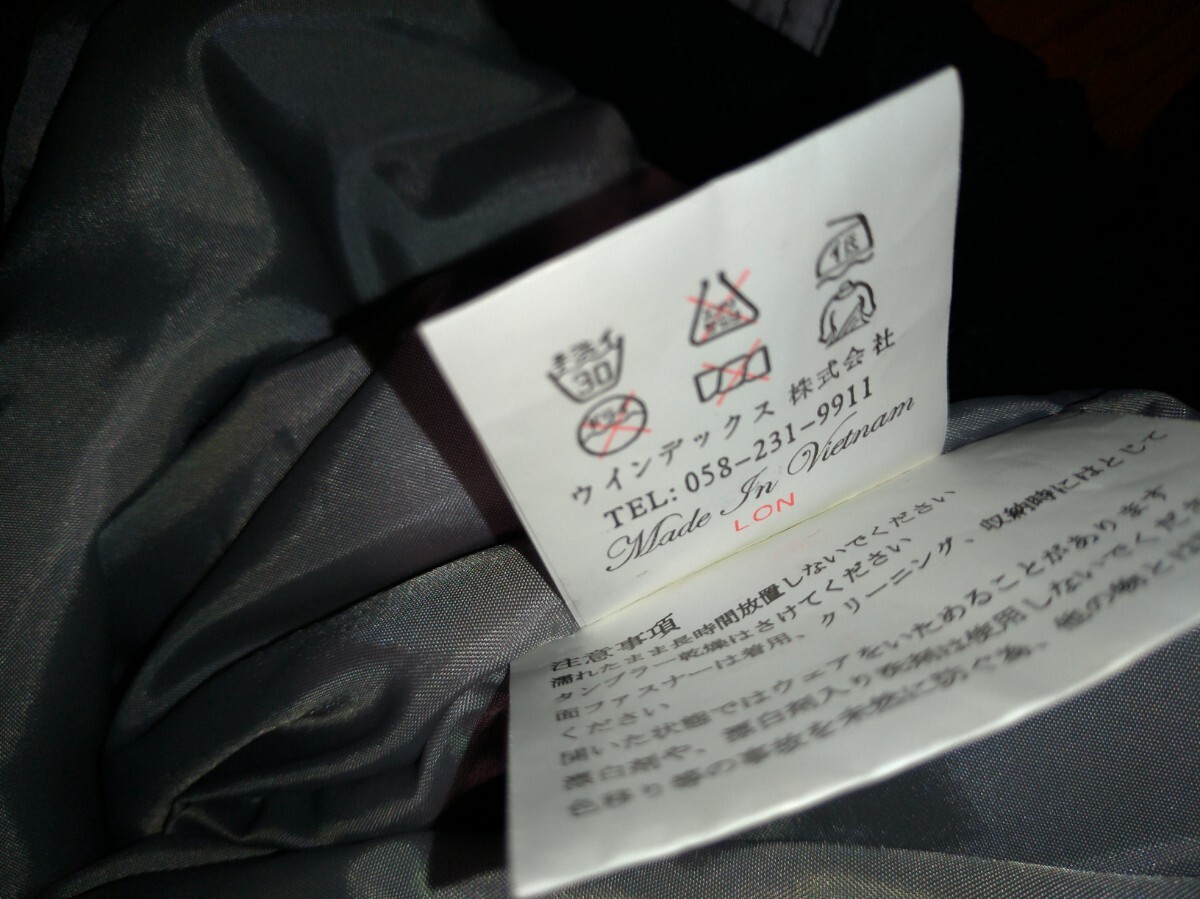 手洗イ
30
エンソ
サラシ
ドライ
ウインデックス 株式会社
TEL: 058-231-9911
Made In Vietnam
LON
注意事項
濡れたまま長時間放置しないでください
タンブラー乾燥はさけてください
面ファスナーは着用、クリーニング、収納時にはとじて
ください
開いた状態ではウェアをいためることがあります
漂白剤や、漂白剤入り洗剤は使用しないでくだ
色移り等の事故を未然に防ぐ為、他の物とは